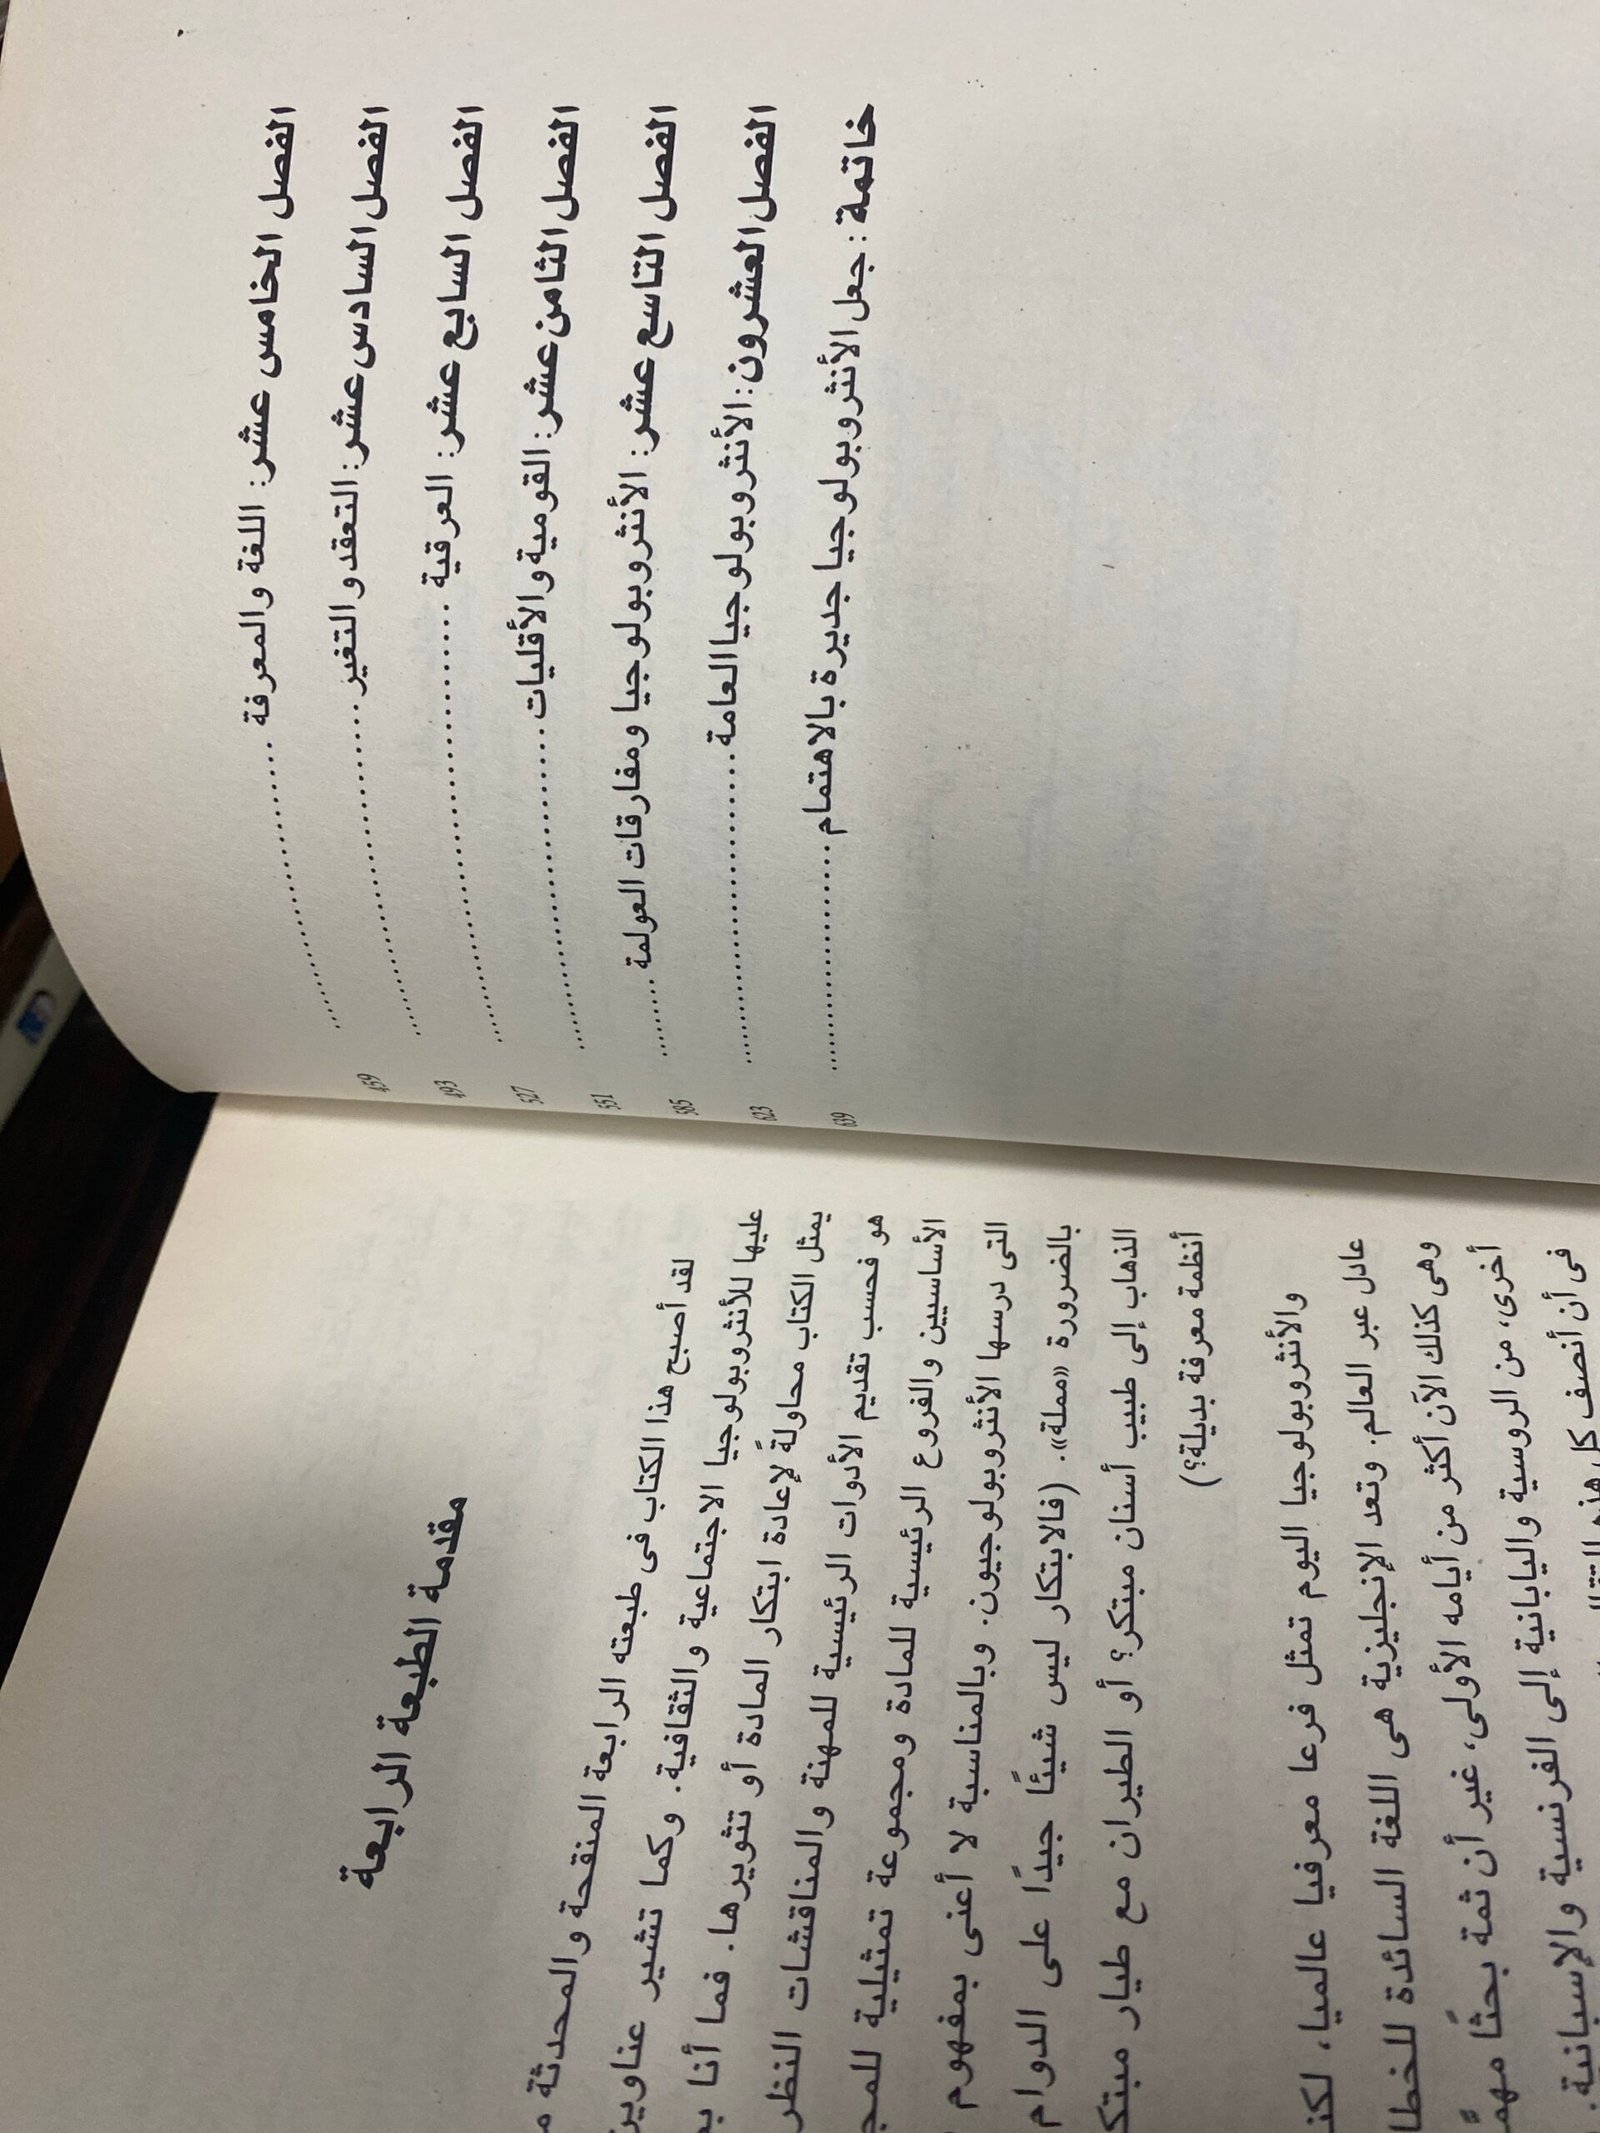 الفصل الخامس عشر: اللغة والمعرفة ........................ 459
الفصل السادس عشر: التعقد والتغير ........................ 493
الفصل السابع عشر: العرقية ........................ 527
الفصل الثامن عشر: القومية والأقليات ........................ 551
الفصل التاسع عشر: الأنثروبولوجيا ومفارقات العولمة ......... 585
الفصل العشرون: الأنثروبولوجيا العامة ........................ 623
خاتمة: جعل الأنثروبولوجيا جديرة بالاهتمام .................. 639
مقدمة الطبعة الرابعة
لقد أصبح هذا الكتاب فى طبعته الرابعة المنقحة والمحدثة
عليها للأنثروبولوجيا الاجتماعية والثقافية. وكما تشير
يمثل الكتاب محاولةً لإعادة ابتكار المادة أو تثويرها. فما أنا
هو فحسب تقديم الأدوات الرئيسية للمهنة والمناقشات
الأساسيين والفروع الرئيسية للمادة ومجموعة تمثيلية
التى درسها الأنثروبولوجيون. وبالمناسبة لا أعنى بمفهوم
بالضرورة «مملة». (فالابتكار ليس شيئًا جيدًا على الدوام
الذهاب إلى طبيب أسنان مبتكر؟ أو الطيران مع طيار
أنظمة معرفة بديلة؟)
والأنثروبولوجيا اليوم تمثل فرعا معرفيا عالميا،
عادل عبر العالم. وتعد الإنجليزية هى اللغة السائدة
وهى كذلك الآن أكثر من أيامه الأولى، غير أن ثمة بحثًا
أخرى، من الروسية واليابانية إلى الفرنسية والإسبانية.
فى أن أنصف كل هذه